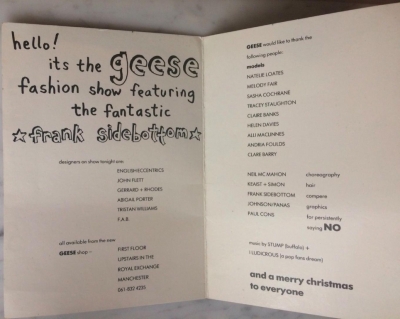 hello!
its the geese
fashion show featuring
the fantastic
☆frank sidebottom☆
designers on show tonight are:
ENGLISHECCENTRICS
JOHN FLETT
GERRARD + RHODES
ABIGAIL PORTER
TRISTAN WILLIAMS
F.A.B.
all available from the new
GEESE shop –
FIRST FLOOR
UPSTAIRS IN THE
ROYAL EXCHANGE
MANCHESTER
061 832 4235
GEESE would like to thank the
following people:
models
NATELIE LOATES
MELODY FAIR
SASHA COCHRANE
TRACEY STAUGHTON
CLAIRE BANKS
HELEN DAVIES
ALLI MACLINNES
ANDRIA FOULDS
CLARE BARRY
NEIL MC MAHON choreography
KEMIST + SIMON hair
FRANK SIDEBOTTOM compere
JOHNSON/PANAS graphics
PAUL CONS for persistently
saying NO
music by STUMP (buffalo) +
I LUDICROUS (a pop fans dream)
and a merry christmas
to everyone